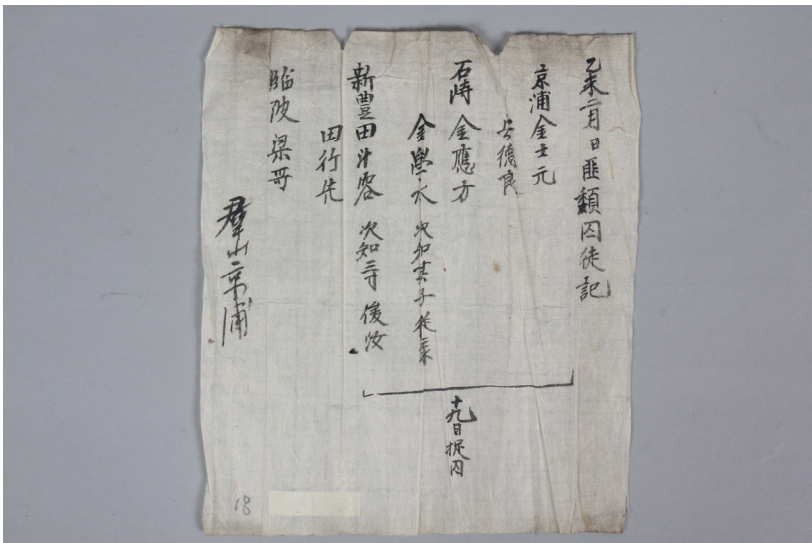 乙未二月 日匪類囚徒記
京浦金士元
德良
石峙 金應方
金學水 次知其子
新豊田斗容 次知三寸 俊汝
田行先
臨陂 梁哥
十九日捉囚
羣山京浦
18